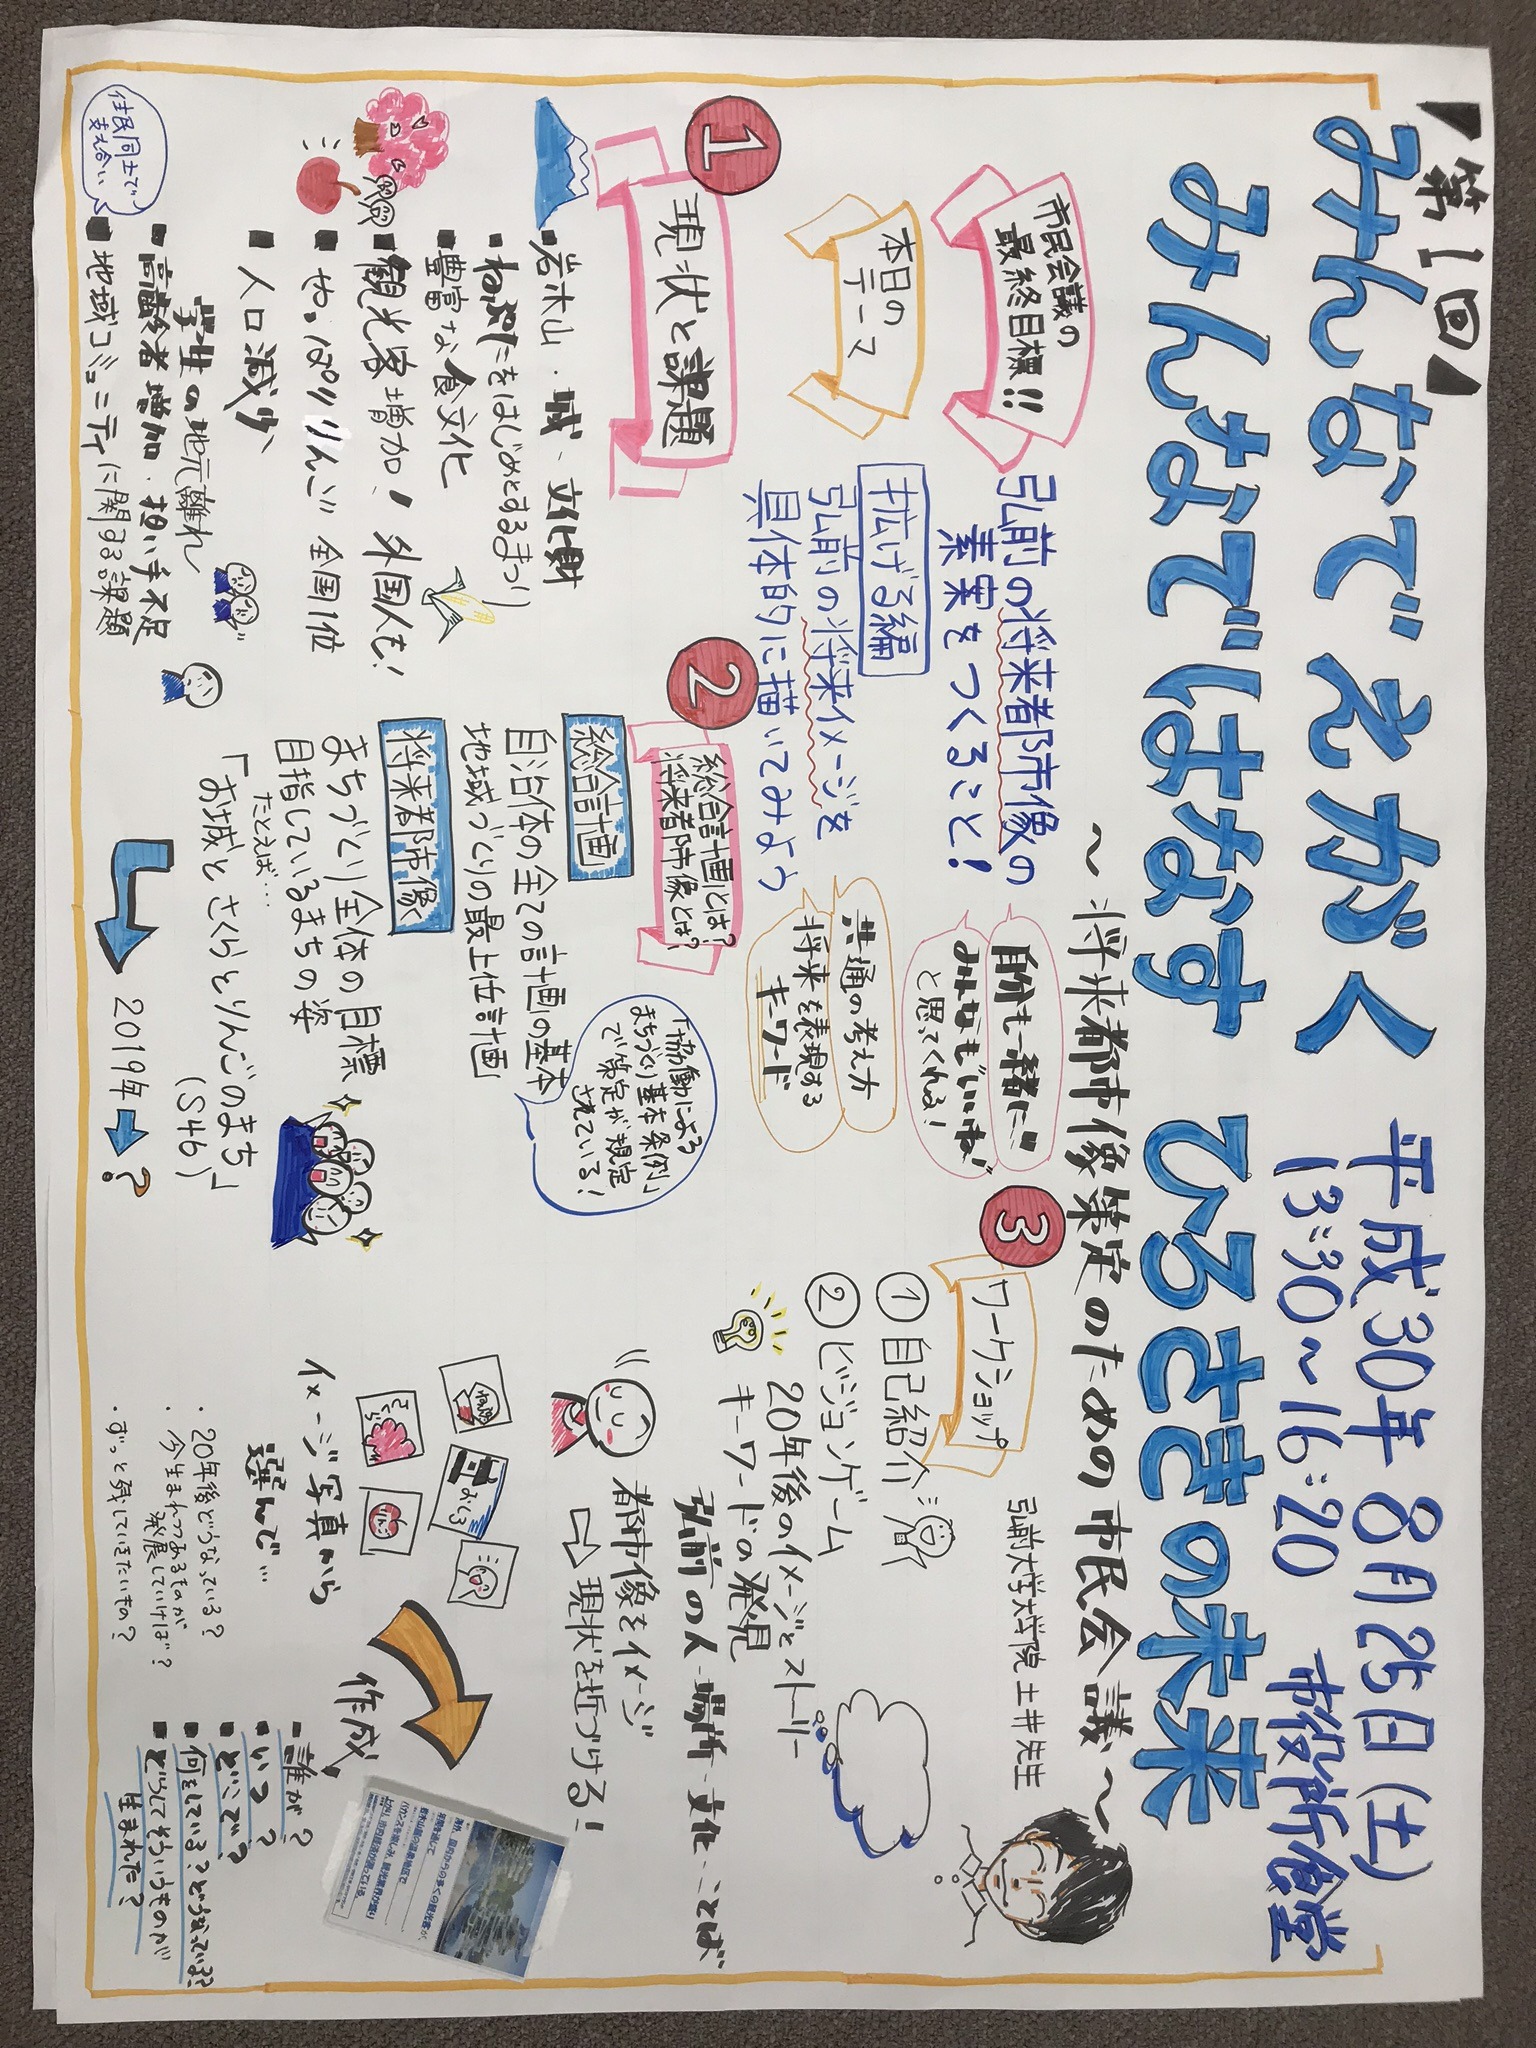 【第1回】
みんなでえがく
みんなではなす ひろさきの未来
平成30年 8月25日(土)
13:30〜16:20 市役所食堂
〜将来都市像策定のための市民会議〜
弘前大学大学院 土井先生
市民会議の
最終目標!!
弘前の将来都市像の
素案をつくること!
自分も一緒に"
みんなも"いいね"
と思ってくれる!
本日の
テーマ
拡げる編
弘前の将来イメージを
具体的に描いてみよう
共通の考え方
将来を表現する
キーワード
1
現状と課題
岩木山・城・文化財
ねぷたをはじめとするまつり
豊富な食文化
観光客増加!外国人も!
やっぱり りんご!! 全国1位
人口減少
学生の地元離れ
高齢者増加・担い手不足
地域コミュニティに関する課題
住民同士で
支え合い
2
総合計画とは?
将来都市像とは?
総合計画
自治体の全ての計画の基本
地域づくりの最上位計画」
「協働による
まちづくり基本条例」
で策定が規定
されている!
将来都市像
まちづくり全体の目標
目指しているまちの姿
たとえば…
「お城とさくらとりんごのまち」
(S46)
2019年 → ?
3
ワークショップ
① 自己紹介
② ビジョンゲーム
20年後のイメージとストーリー
キーワードの発見
弘前の人・場所・文化・ことば
都市像をイメージ
現状を近づける!
ねぷた
おしろ
りんご
イメージ写真から
選んで…
・20年後どうなっている?
・今生まれつつあるものが
発展していけば?
・ずっと残していきたいもの?
作成
誰が?
いつ?
どこで?
何をしている?どうなっている?
どうしてそういうものが
生まれた?